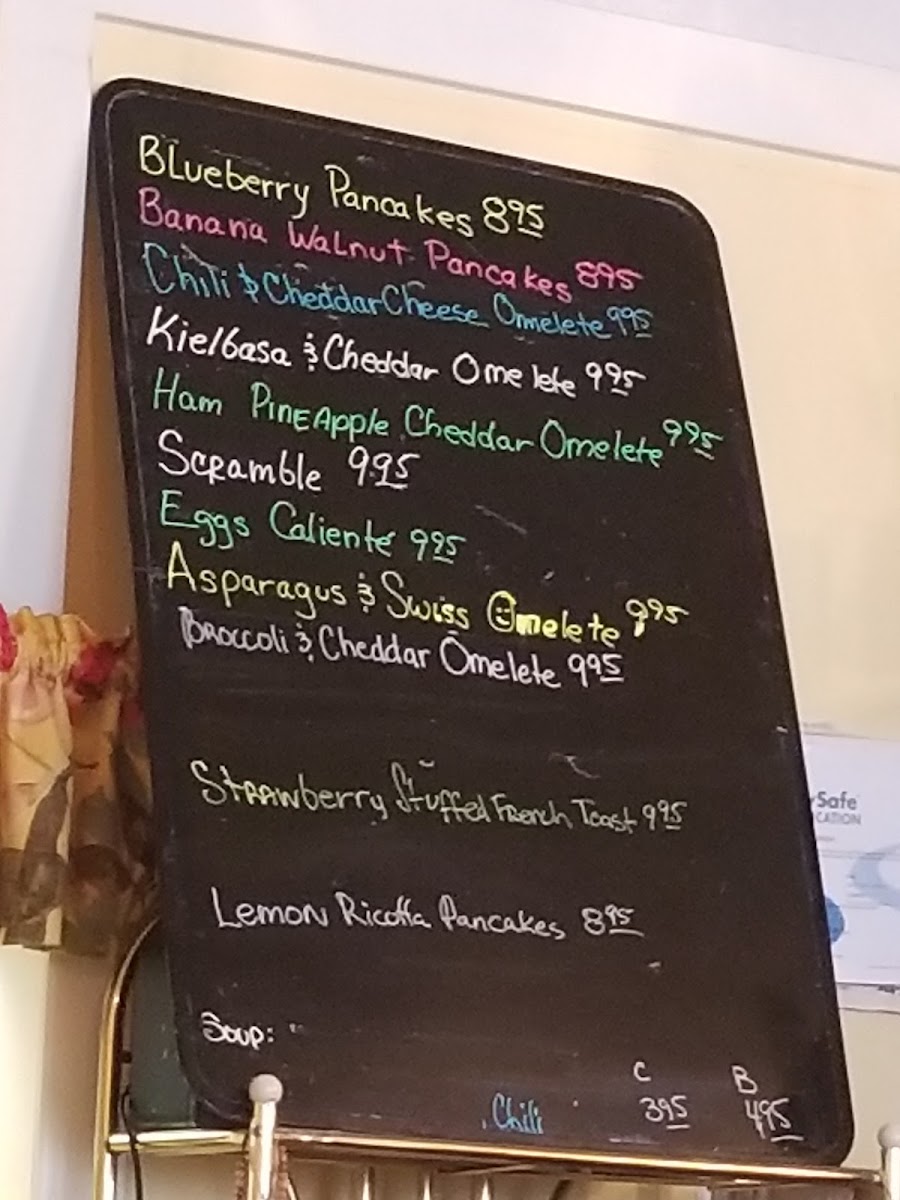 BLueberry Pancakes 8 95
Banana WaLnut Pancakes 895
Chili & Cheddar Cheese Ommelete 995
Kielbasa & Cheddar Omelete 995
Ham PinEApple Cheddar Omelete 995
Scramble 9.95
Eggs Caliente 995
Asparagus & Swiss Omelete 995
Broccoli & Cheddar Omelete 995
Strawberry Stuffed French Toast 995
Lemon Ricotta Pancakes 895
Soup:
C B
Chili 395 495
Safe
CATION